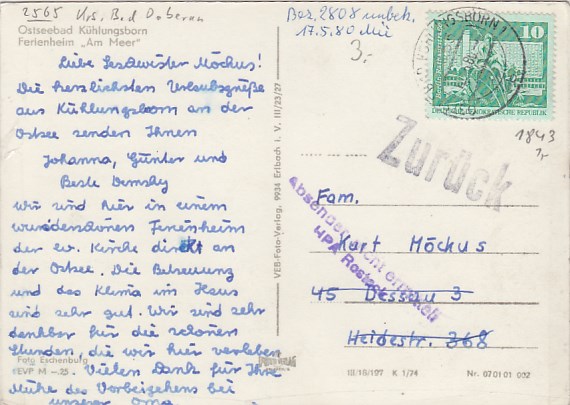 2565 Krs. Bad Doberan
Ostseebad Kühlungsborn
Ferienheim „Am Meer"
Liebe Geschwister Möckus!
Die herzlichsten Urlaubsgrüße
aus Kühlungsborn an der
Ostsee senden Ihnen
Johanna, Günter und
Beate
wir sind hier in einem
wunderschönen Ferienheim
der ev. Kirche direkt an
der Ostsee. Die Betreuung
und das Klima im Haus
sind sehr gut. Wir sind sehr
dankbar für die schönen
Stunden, die wir hier verleben
Foto Eschenburg
EVP M –.25
Vielen Dank für Ihre
Mühe des Vorbeigehens bei
unserer Oma
VEB-Foto-Verlag, 9934 Erlbach i. V. III/23/27
Bez. 2808 unbek.
17.5.80
3,-
KÜHLUNGSBORN 1
10
DEUTSCHE DEMOKRATISCHE REPUBLIK
1843
1,-
Zurück
Absender nicht ermittelt
HPA Rostock
Fam.
Kurt Möckus
45 Dessau 3
Heidestr. 368
III/18/197 K 1/74
Nr. 07 01 01 002